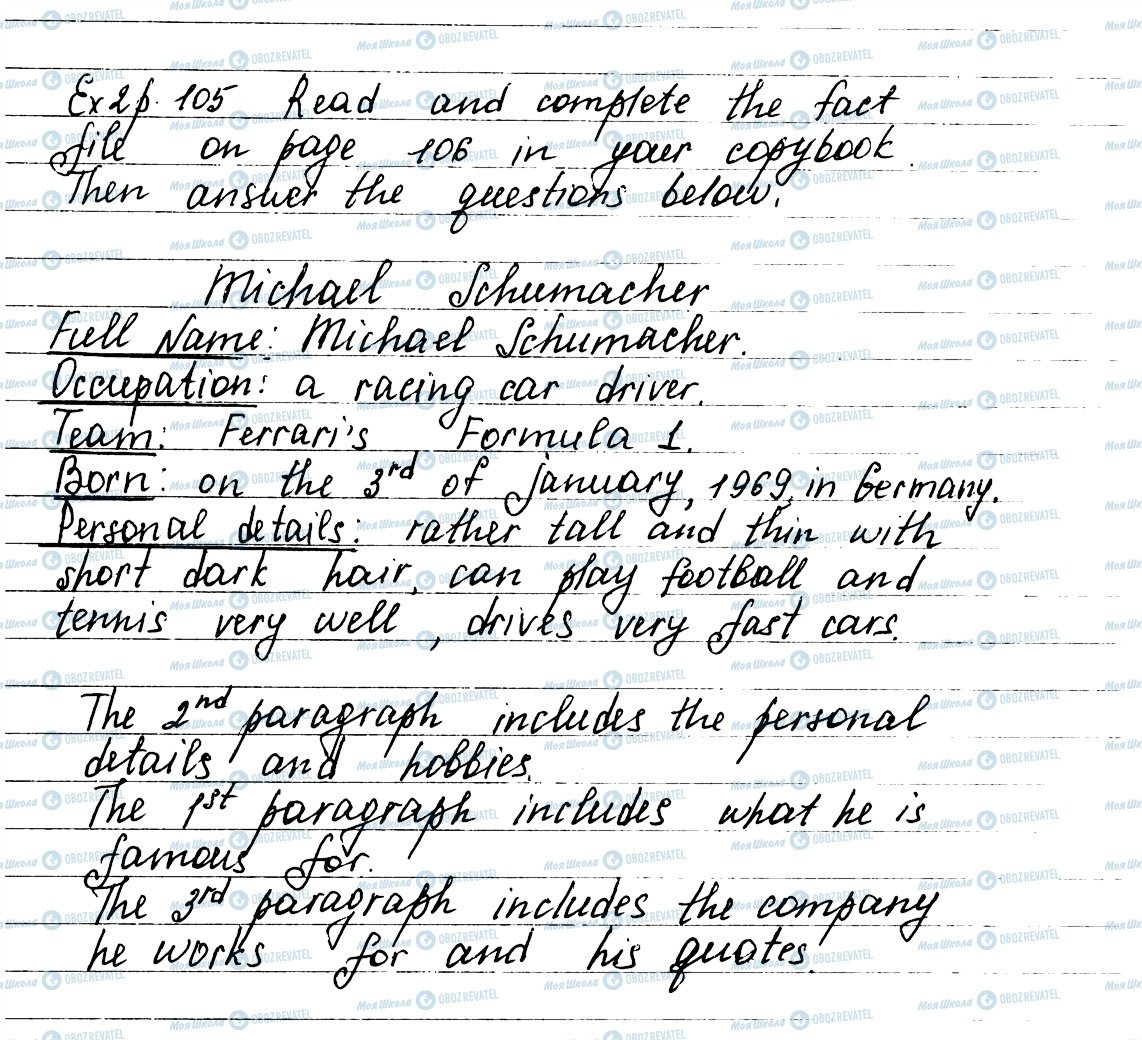 Ex 2 p. 105 Read and complete the fact
file on page 106 in your copybook.
Then answer the questions below.
Michael Schumacher
Full Name: Michael Schumacher.
Occupation: a racing car driver.
Team: Ferrari's Formula 1.
Born: on the 3rd of January, 1969, in Germany.
Personal details: rather tall and thin with
short dark hair, can play football and
tennis very well, drives very fast cars.
The 2nd paragraph includes the personal
details and hobbies.
The 1st paragraph includes what he is
famous for.
The 3rd paragraph includes the company
he works for and his quotes.
МояШкола OBOZREVATEL